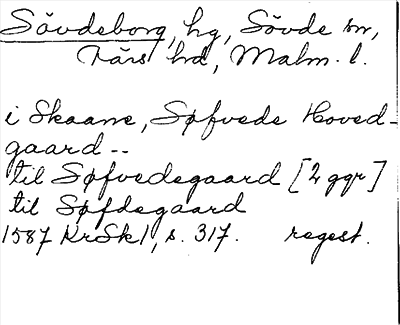 Sövdeborg, hg, Sövde sn,
Färs hd, Malm. l.
i Skaane, Søfvede Hoved-
gaard --
til Søfvedegaard [2 ggr]
til Søfdegaard
1587 KrSk 1, s. 317. regest.